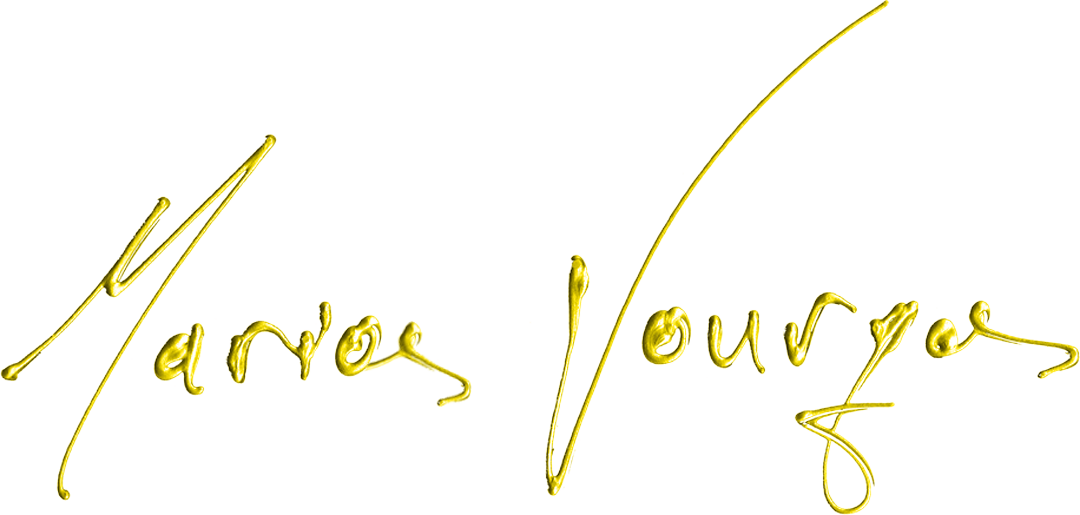 Marios Vourgas